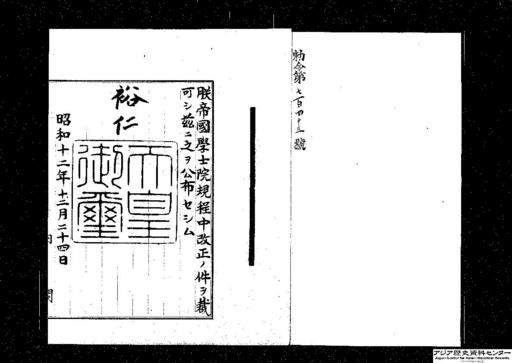 勅令第七百四十三號
朕帝國學士院規程中改正ノ件ヲ裁
可シ茲ニ之ヲ公布セシム
裕仁
天皇
御璽
昭和十二年十二月二十四日
アジア歴史資料センター
Japan Center for Asian Historical Records